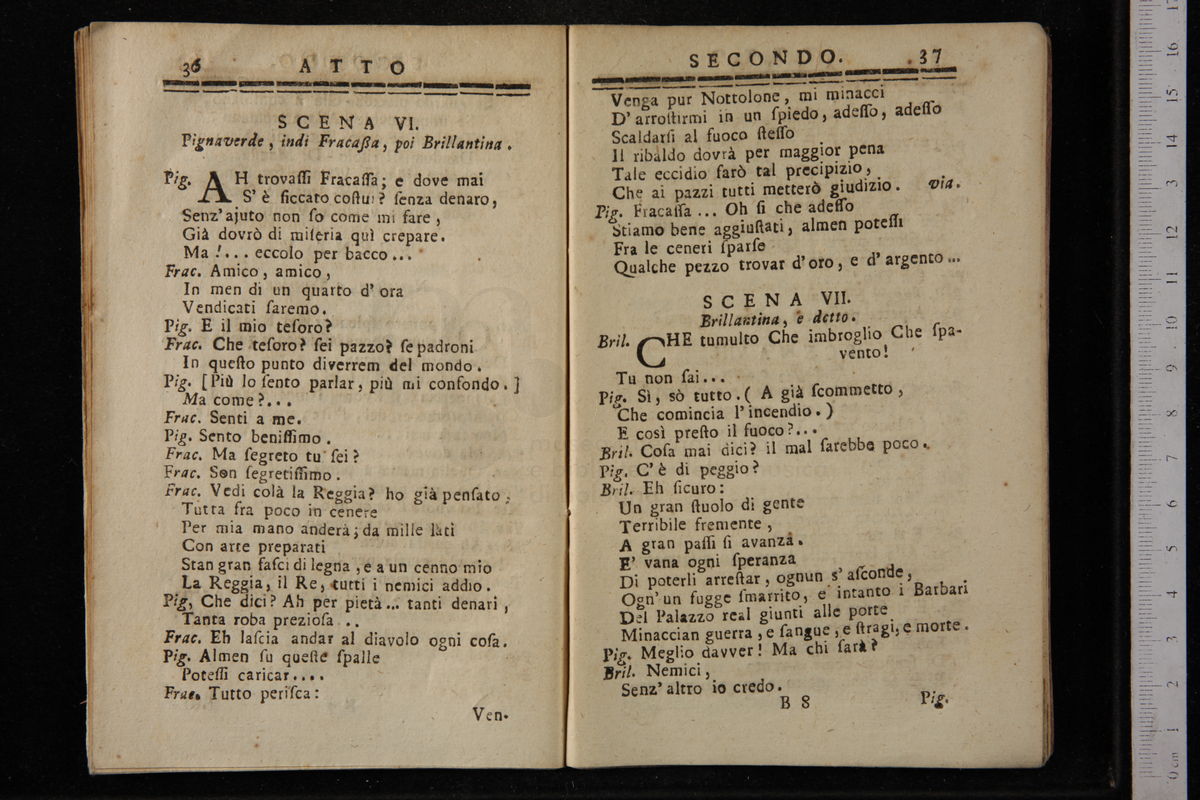 36 ATTO
SCENA VI.
Pignaverde, indi Fracaſſa, poi Brillantina.
Pig. AH trovaſſi Fracaſſa; e dove mai
S' è ficcato coſtui? ſenza denaro,
Senz' ajuto non ſo come mi fare,
Già dovrò di miſeria quì crepare.
Ma !... eccolo per bacco...
Frac. Amico, amico,
In men di un quarto d' ora
Vendicati ſaremo.
Pig. E il mio teſoro?
Frac. Che teſoro? ſei pazzo? ſe padroni
In queſto punto diverrem del mondo.
Pig. [Più lo ſento parlar, più mi confondo.]
Ma come?...
Frac. Senti a me.
Pig. Sento beniſſimo.
Frac. Ma ſegreto tu ſei?
Frac. Son ſegretiſſimo.
Frac. Vedi colà la Reggia? ho già penſato;
Tutta fra poco in cenere
Per mia mano anderà; da mille lati
Con arte preparati
Stan gran faſci di legna, e a un cenno mio
La Reggia, il Re, tutti i nemici addio.
Pig, Che dici? Ah per pietà... tanti denari,
Tanta roba prezioſa...
Frac. Eh laſcia andar al diavolo ogni coſa.
Pig. Almen ſu queſte ſpalle
Poteſſi caricar....
Frac. Tutto periſca:
Ven-
SECONDO. 37
Venga pur Nottolone, mi minacci
D' arroſtirmi in un ſpiedo, adeſſo, adeſſo
Scaldarſi al fuoco ſteſſo
Il ribaldo dovrà per maggior pena
Tale eccidio farò tal precipizio,
Che ai pazzi tutti metterò giudizio. via.
Pig. Fracaſſa ... Oh ſi che adeſſo
Stiamo bene aggiuſtati, almen poteſſi
Fra le ceneri ſparſe
Qualche pezzo trovar d' oro, e d' argento...
SCENA VII.
Brillantina, e detto.
Bril. CHE tumulto Che imbroglio Che ſpa-
vento!
Tu non ſai...
Pig. Sì, sò tutto. ( A già ſcommetto,
Che comincia l' incendio. )
E così preſto il fuoco?...
Bril. Coſa mai dici? il mal ſarebbe poco.
Pig. C' è di peggio?
Bril. Eh ſicuro:
Un gran ſtuolo di gente
Terribile fremente,
A gran paſſi ſi avanza.
E' vana ogni ſperanza
Di poterli arreſtar, ognun s' aſconde,
Ogn' un fugge ſmarrito, e intanto i Barbari
Del Palazzo real giunti alle porte
Minaccian guerra, e ſangue, e ſtragi, e morte.
Pig. Meglio davver! Ma chi ſarà?
Bril. Nemici,
Senz' altro io credo.
B 8 Pig.